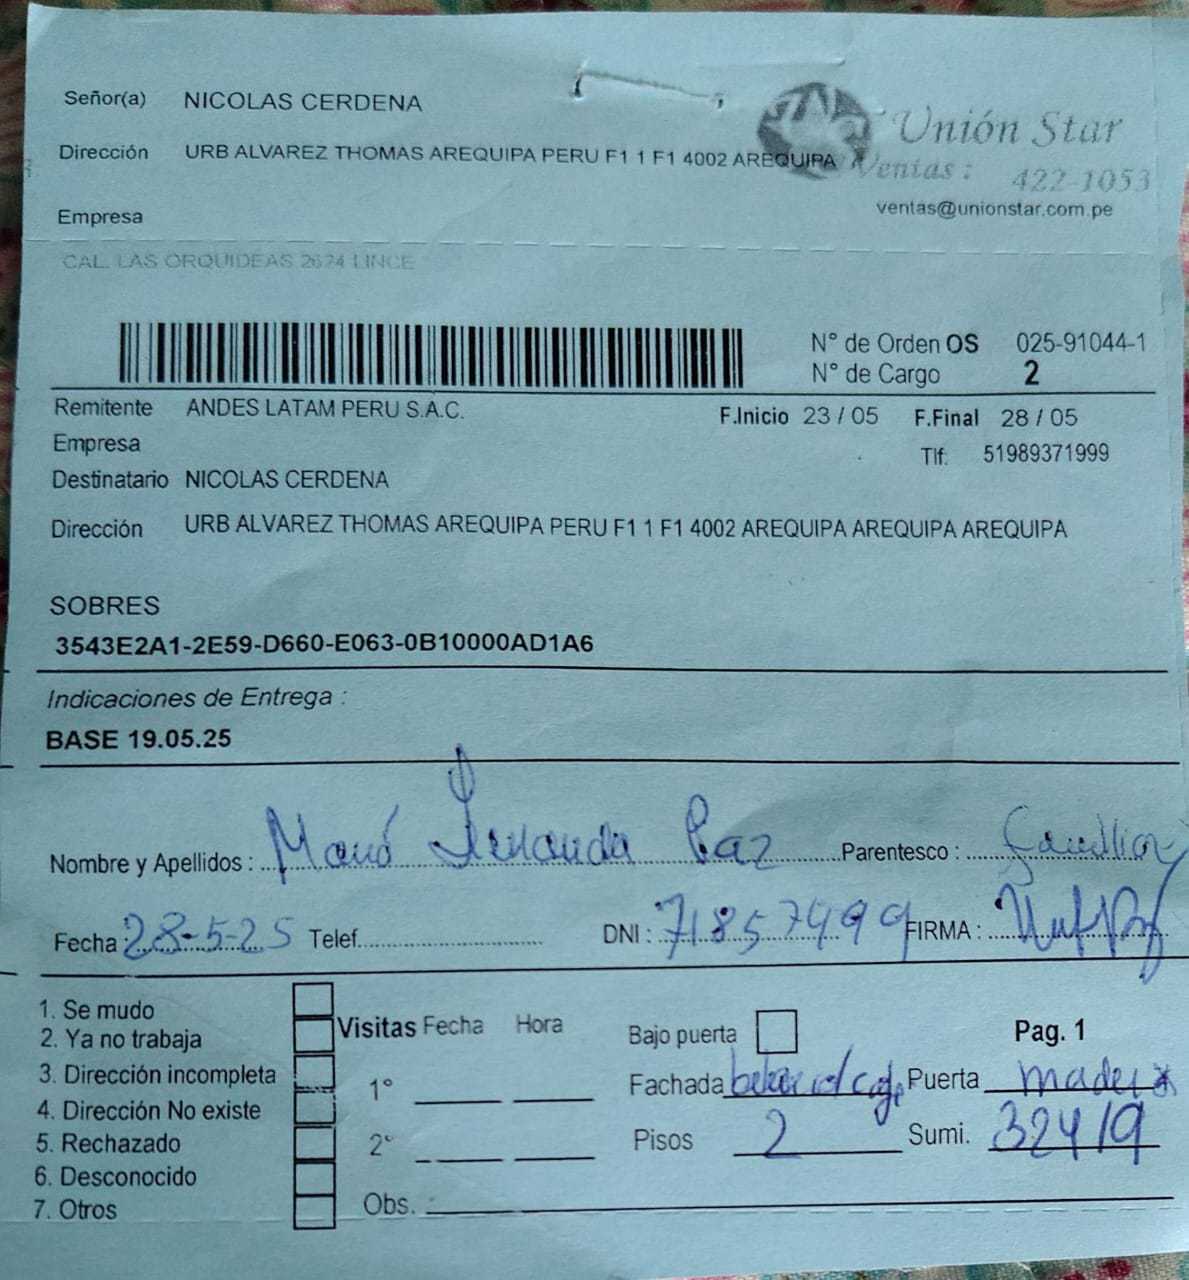 Señor(a) NICOLAS CERDENA
Unión Star
Dirección URB ALVAREZ THOMAS AREQUIPA PERU F1 1 F1 4002 AREQUIPA
Ventas: 422-1053
ventas@unionstar.com.pe
Empresa
CAL. LAS ORQUIDEAS 2674 LINCE
N° de Orden OS 025-91044-1
N° de Cargo 2
Remitente ANDES LATAM PERU S.A.C.
F.Inicio 23 / 05 F.Final 28 / 05
Empresa
Tlf: 51989371999
Destinatario NICOLAS CERDENA
Dirección URB ALVAREZ THOMAS AREQUIPA PERU F1 1 F1 4002 AREQUIPA AREQUIPA AREQUIPA
SOBRES
3543E2A1-2E59-D660-E063-0B10000AD1A6
Indicaciones de Entrega :
BASE 19.05.25
Nombre y Apellidos : Fernanda Paz Parentesco : familiar
Fecha : 28-5-25 Telef. DNI : 71857499 FIRMA :
1. Se mudo
2. Ya no trabaja
3. Dirección incompleta
4. Dirección No existe
5. Rechazado
6. Desconocido
7. Otros
Visitas Fecha Hora
1°
2°
Obs. :
Bajo puerta
Pag. 1
Fachada Puerta madera
Pisos 2 Sumi. 32419